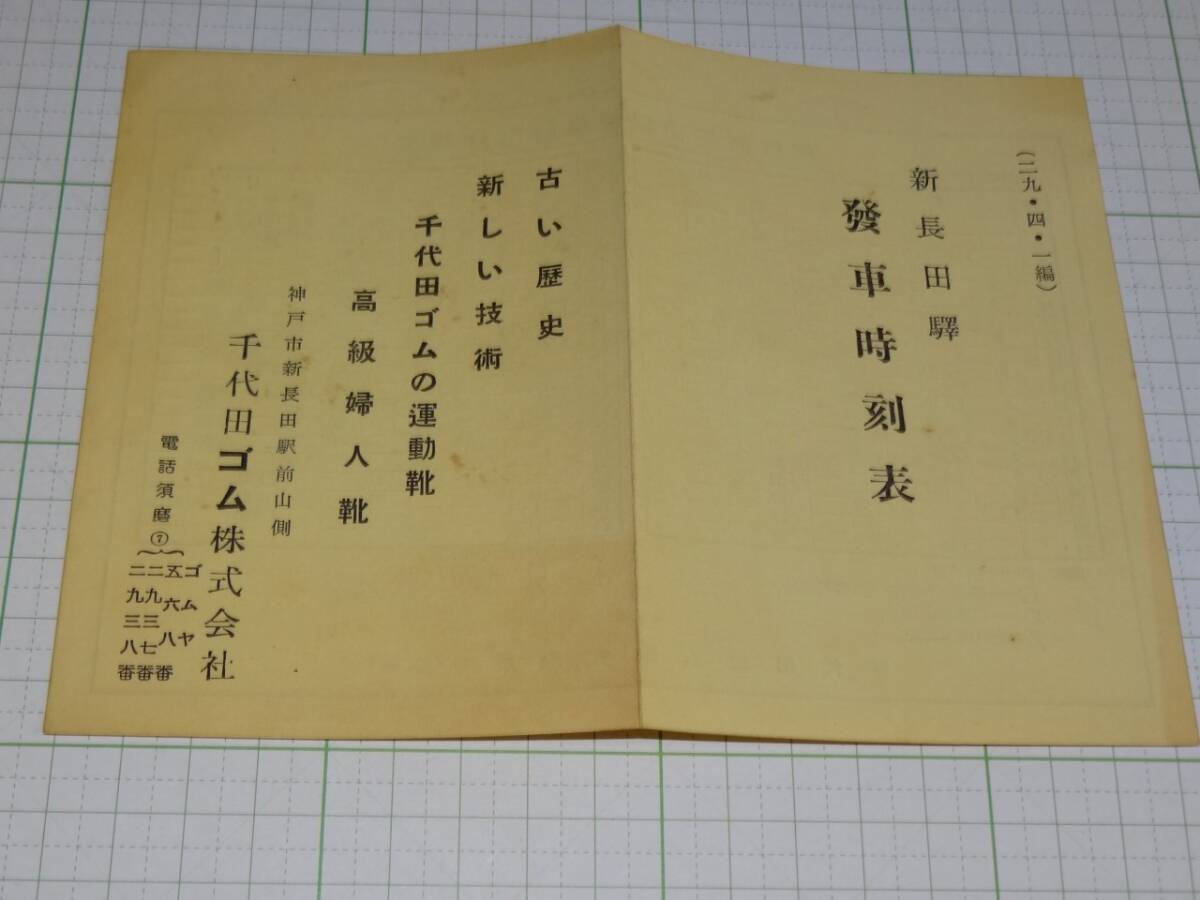 (二九・四・一編)
新長田驛
發車時刻表
古い歴史
新しい技術
千代田ゴムの運動靴
高級婦人靴
神戸市新長田駅前山側
千代田ゴム株式会社
電話須磨⑦
ゴムヤ
五六八番
二九三七番
二九三八番